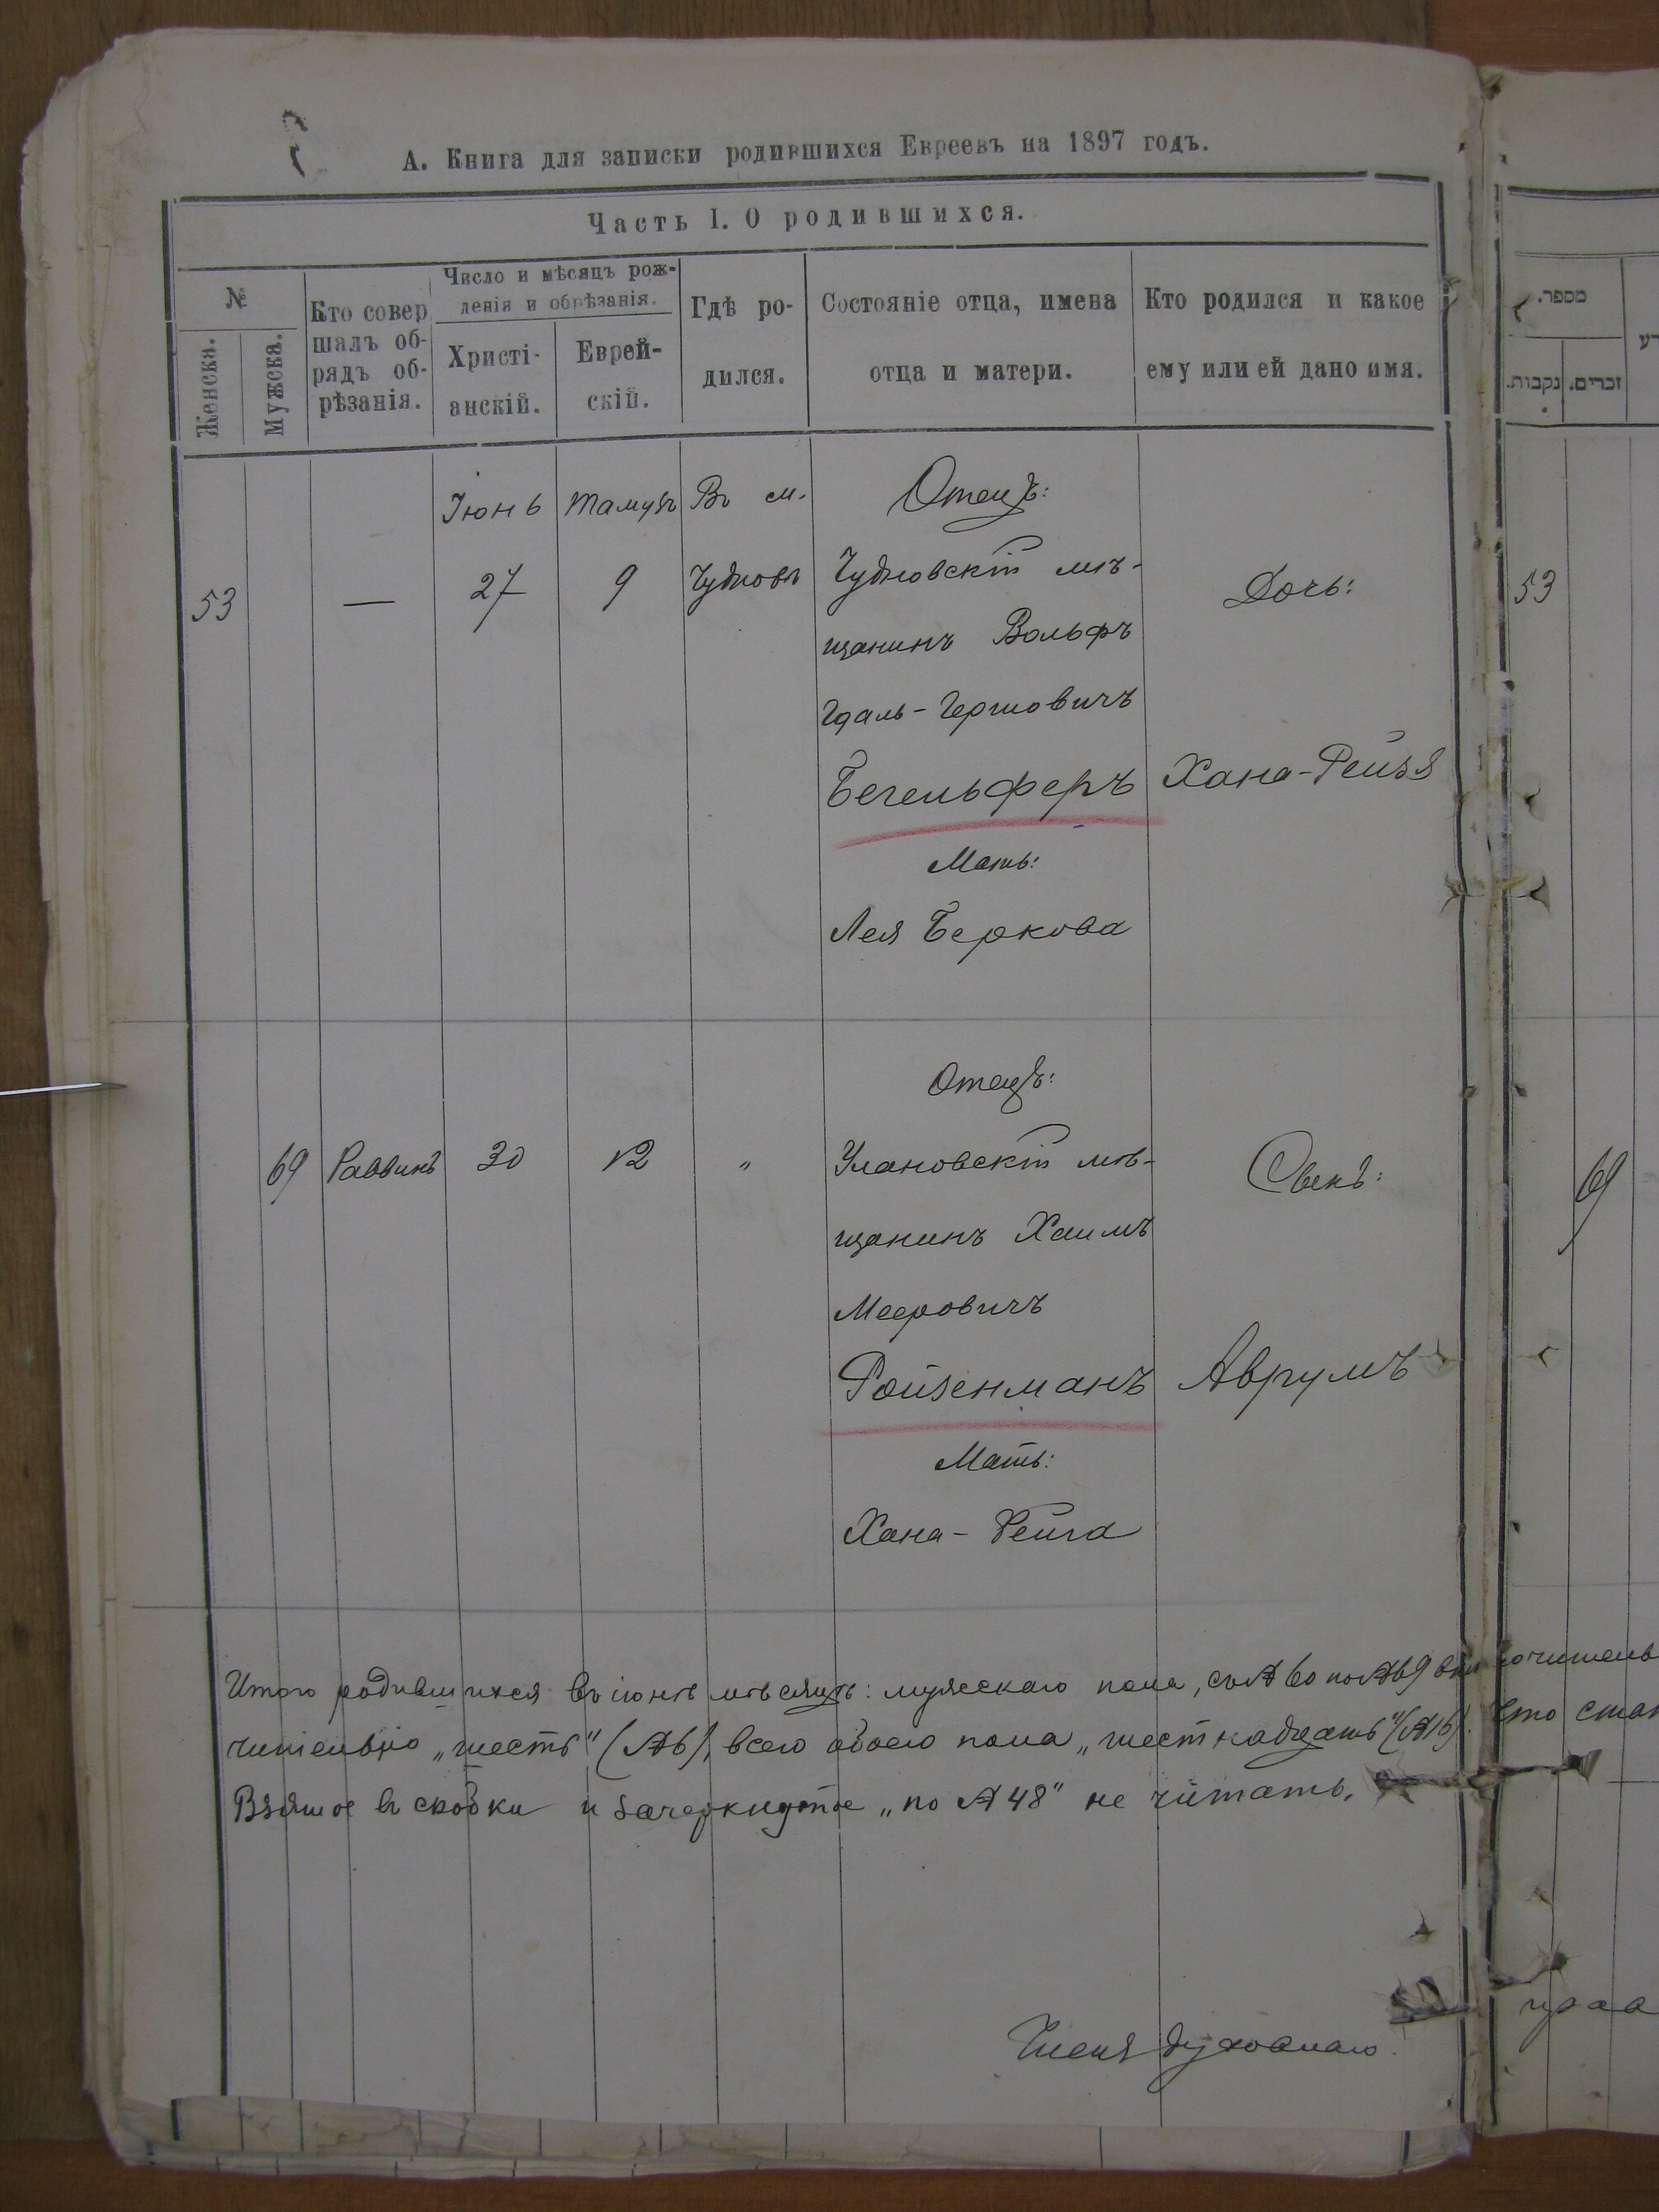 А. Книга для записки родившихся Евреевъ на 1897 годъ.
Часть I. О родившихся.
№
Женска.
Мужска.
Кто совер
шалъ об-
рядъ об-
рѣзанія.
Число и мѣсяцъ рож-
ленія и обрѣзанія.
Христі-
анскій.
Еврей-
скій.
Гдѣ ро-
дился.
Состояніе отца, имена
отца и матери.
Кто родился и какое
ему или ей дано имя.
מספר.
נקבות.
זכרים.
53
—
Іюнь
27
Тамузъ
9
Въ м.
Чудновъ
Отецъ:
Чудновскій мѣ-
щанинъ Вольфъ
Гдаль-Гершовичъ
Бегельферъ
Мать:
Лея Беркова
Дочь:
Хана-Рейзя
53
69
Раввинъ
30
12
"
Отецъ:
Улановскій мѣ-
щанинъ Хаимъ
Мееровичъ
Ройзенманъ
Мать:
Хана-Рейза
Сынъ:
Аврумъ
69
Итого родившихся въ іюнѣ мѣсяцѣ: мужескаго пола, съ № 60 по № 69 вкл
чительно „шесть" (№ 6), всего обоего пола „шестнадцать" (№ 16).
Взятое въ скобки и зачеркнутое „по № 48" не читать.
Что
Члены духовнаго